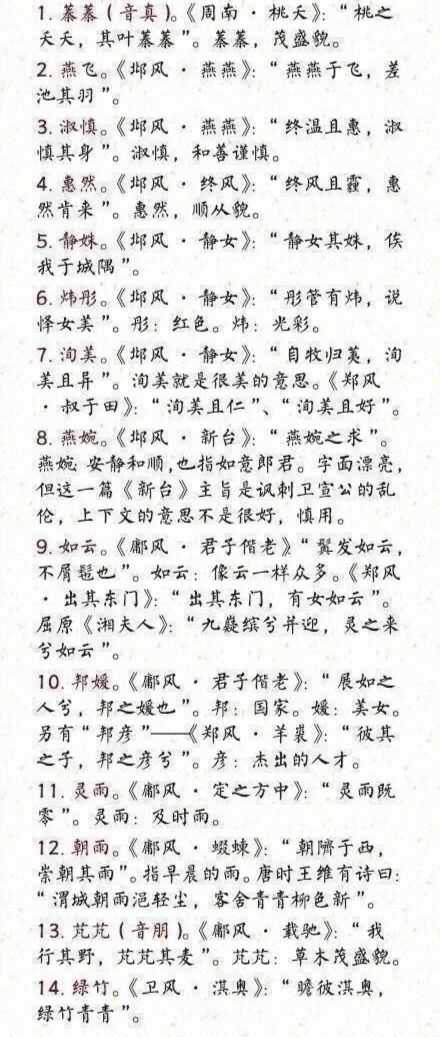 1. 蓁蓁（音真）。《周南·桃夭》：“桃之
夭夭，其叶蓁蓁”。蓁蓁，茂盛貌。
2. 燕飞。《邶风·燕燕》：“燕燕于飞，差
池其羽”。
3. 淑慎。《邶风·燕燕》：“终温且惠，淑
慎其身”。淑慎，和善谨慎。
4. 惠然。《邶风·终风》：“终风且霾，惠
然肯来”。惠然，顺从貌。
5. 静姝。《邶风·静女》：“静女其姝，俟
我于城隅”。
6. 炜彤。《邶风·静女》：“彤管有炜，说
怿女美”。彤：红色。炜：光彩。
7. 洵美。《邶风·静女》：“自牧归荑，洵
美且异”。洵美就是很美的意思。《郑风
·叔于田》：“洵美且仁”、“洵美且好”。
8. 燕婉。《邶风·新台》：“燕婉之求”。
燕婉 安静和顺，也指如意郎君。字面漂亮，
但这一篇《新台》主旨是讽刺卫宣公的乱
伦，上下文的意思不是很好，慎用。
9. 如云。《鄘风·君子偕老》“鬒发如云，
不屑髢也”。如云：像云一样众多。《郑风
·出其东门》：“出其东门，有女如云”。
屈原《湘夫人》：“九嶷缤兮并迎，灵之来
兮如云”。
10. 邦媛。《鄘风·君子偕老》：“展如之
人兮，邦之媛也”。邦：国家。媛：美女。
另有“邦彦”——《郑风·羊裘》：“彼其
之子，邦之彦兮”。彦：杰出的人才。
11. 灵雨。《鄘风·定之方中》：“灵雨既
零”。灵雨：及时雨。
12. 朝雨。《鄘风·蝃蝀》：“朝隮于西，
崇朝其雨”。指早晨的雨。唐时王维有诗曰：
“渭城朝雨浥轻尘，客舍青青柳色新”。
13. 芃芃（音朋）。《鄘风·载驰》：“我
行其野，芃芃其麦”。芃芃：草木茂盛貌。
14. 绿竹。《卫风·淇奥》：“瞻彼淇奥，
绿竹青青”。